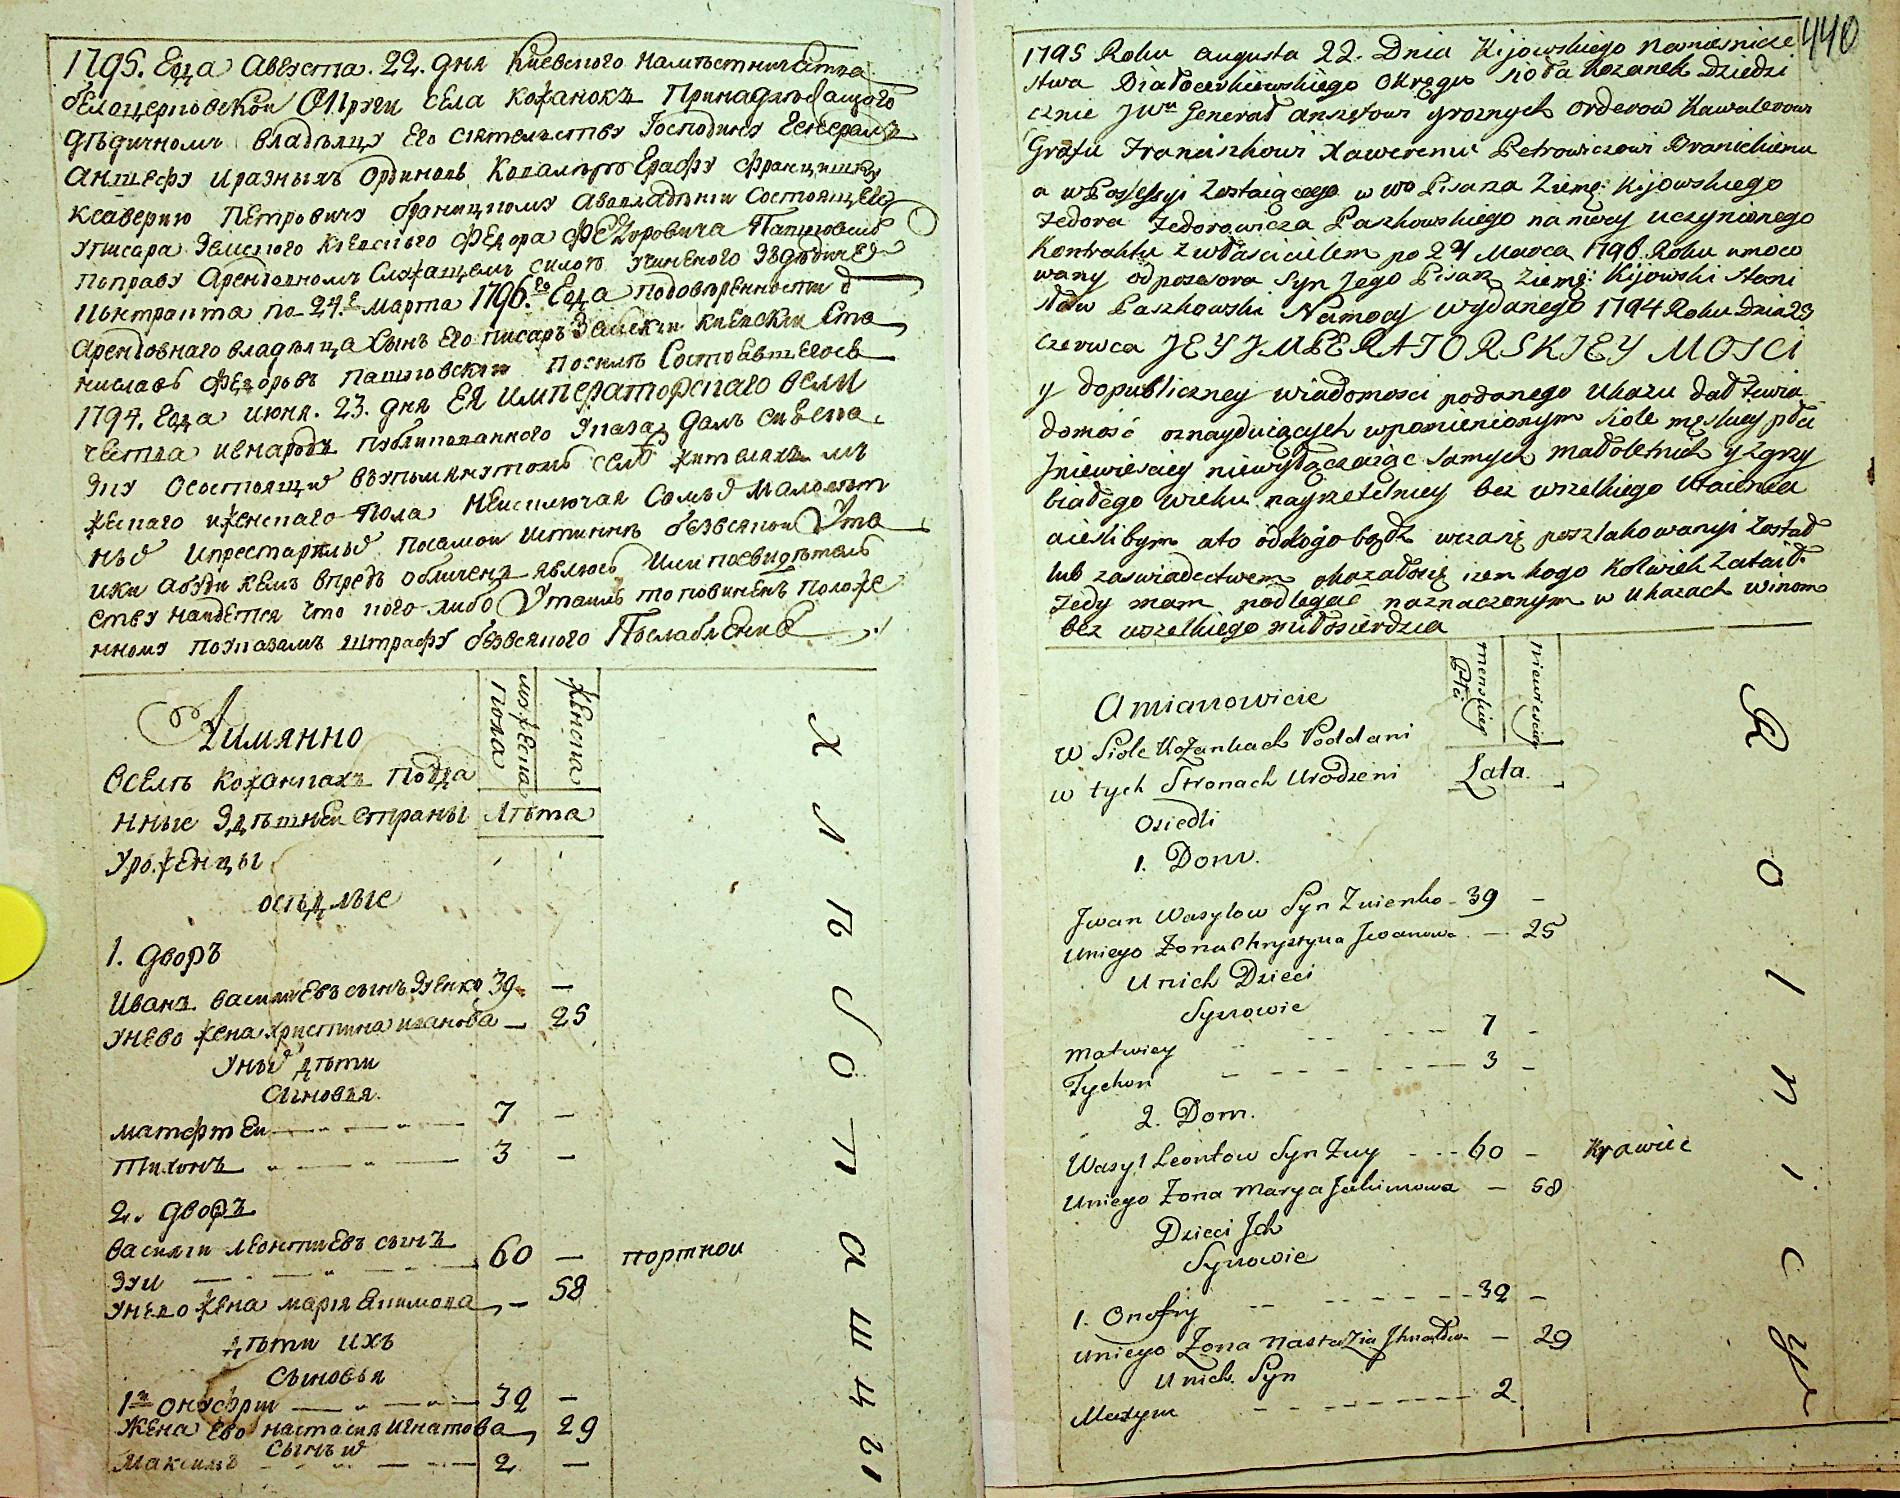 1795. Года Августа. 22. дня Киевского наместничества
белоцерковской Округи села Кожанокъ Принадлежащого
дѣдичному владѣлцу Его Сіятелству Господину Генералъ
Аншефу и разныхъ Ординовъ Кавалеру Графу Францишку
Ксаверию Петровичу браницкому а во владѣнии Состоящего
у писара Земского Киевского Федора Федоровича Пашковского
по праву Арендовному Служащему силою учиненого З дѣдичемъ
Контракта по 24.е марта 1796.го Года по доверенности
Арендовнаго владѣлца Сынъ Его писаръ Земский Киевский Ста
ниславъ Федоровъ Пашковский По силѣ Состоявшегося
1794. Года июня. 23. дня ЕЯ Императорскаго вели
чества и в народъ публикованного Указа, далъ сию ска
зку О состоящихъ въ упомянутомъ селѣ жителяхъ му
жескаго и женскаго Пола, не исключая Самыхъ Малолѣт
ныхъ и престарѣлыхъ по самой истиннѣ без всякой Ута
йки а буди кемъ впредь обличенъ явлюсь Или по свидѣтель
ству найдется что кого либо Утаилъ то повиненъ положе
нному по указамъ штрафу без всякого Послабления
Аимянно
мужеска
Пола
женска
В селѣ Кожанкахъ Подда
нные Здѣшней страны
Лѣта
Уроженцы
осѣдлые
1. дворъ
Иванъ василиевъ сынъ Зуенко 39 —
у нево жена христина иванова — 25
У ныхъ дѣти
Сыновья.
матфтей 7 —
тихонъ 3 —
2. дворъ
василий леонтиевъ сынъ
Зуй 60 — портной
у нево жена мария Екимова — 58
дѣти ихъ
Сыновья
1й онуфрий 32 —
Жена ево настасия игнатова, 29
Сынъ ихъ
Максимъ 2 —
Хлѣбопашцы
440
1795 Roku augusta 22. Dnia Kijowskiego Namiesnicze
stwa Białocerkiewskiego Okręgu sioła Kozanek Dziedzi
cznie JWu Generał anszefowi groznych orderow Kawalerowi
Grafu Franciszkowi Xaweremu Petrowiczowi Branickiemu
a w Possessyi Zostaiącego w Wo Pisarza Ziems: Kijowskiego
Fedora Fedorowicza Paszkowskiego na mocy uczynionego
Kontraktu z właścicielem po 24 Marca 1796 Roku umoco
wany od possesora Syn Jego Pisarz Ziems: Kijowski Stani
sław Paszkowski Na mocy wydanego 1794 Roku Dnia 23
Czerwca JEY JMPERATORSKIEY MOSCI
y do publiczney wiadomosci podanego Ukazu dał twia
domość o znayduiących w pomienionym siole męskiey płci
y niewiesciey niewyłączaiąc samych małoletnich y zgrzy
białego wieku nayrzetelniey bez wszelkiego Utaienia
aieslibym a to od kogo bądz wczasie poszlakowanyi Został
lub zaswiadectwem okazałosię izem kogo kolwiek Zataił
Tedy mam podlegać naznaczonym w Ukazach winom
bez wszelkiego miłosierdzia
menskiey
Płci
niewiesciey
Amianowicie
W Siole Kożankach Poddani
w tych Stronach Urodzeni
Lata.
Osiedli
1. Dom.
Jwan Wasylow Syn Zuienko - 39 —
Uniego Zona Chrystyna Jwanowa — 25
Unich Dzieci
Synowie
Matwiey 7 —
Tychon 3 —
2. Dom.
Wasyl Leontow Syn Zuy 60 — Krawiec
Uniego Zona Marya Jakimowa — 58
Dzieci Jch
Synowie
1. Onofry 32 —
Uniego Zona Nastazia Jhnatowa — 29
Unich Syn
Maxym 2
Rolnicy